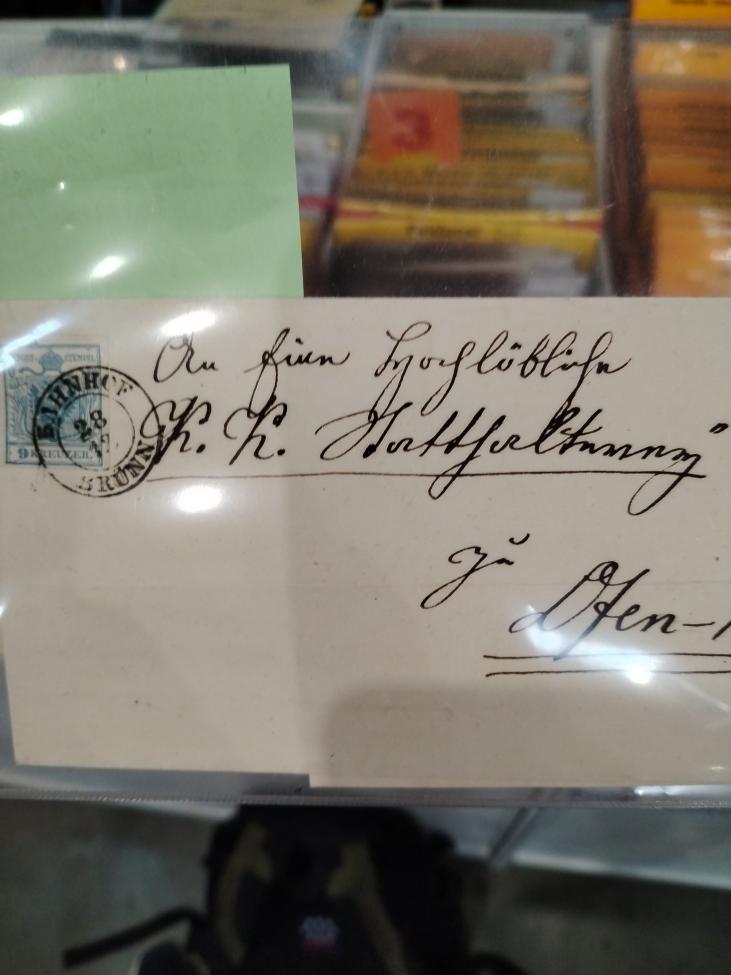 An Eine Hochlöbliche
K. K. Statthalterey
zu
Ofen-
BAHNHOF
28
BRÜNN
STEMPEL
9 KREUZER
3